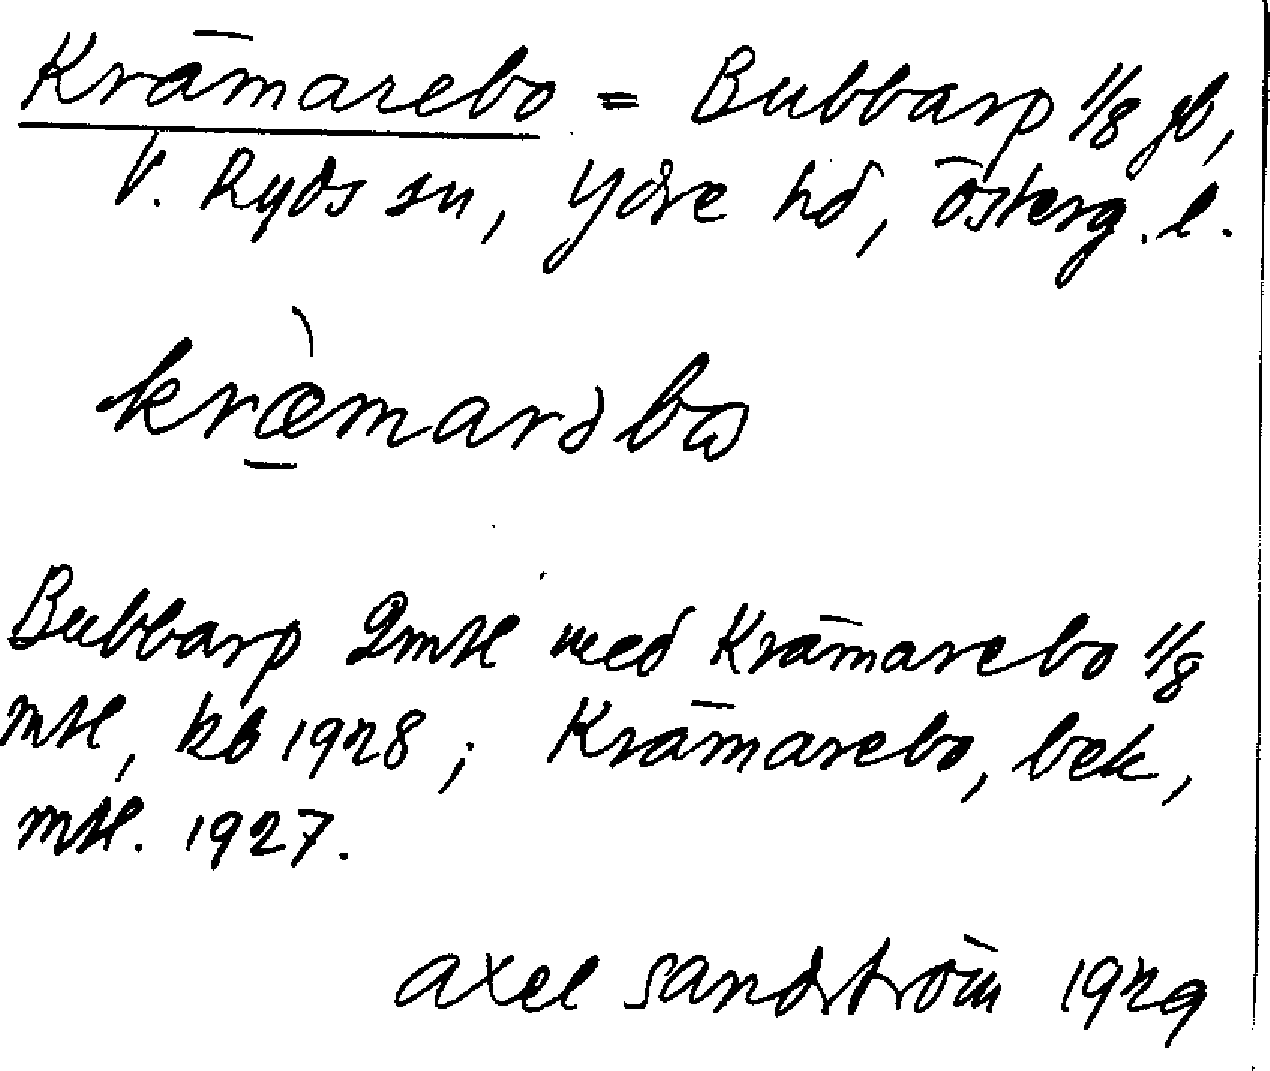 Krämarebo = Bubbarp 1/8 gb,
V. Ryds sn, Ydre hd, Österg. l.
kræ̀marəbω
Bubbarp 2 mtl med Krämarebo 1/8
mtl, kb 1928; Krämarebo, bek,
mtl. 1927.
Axel Sandström 1929